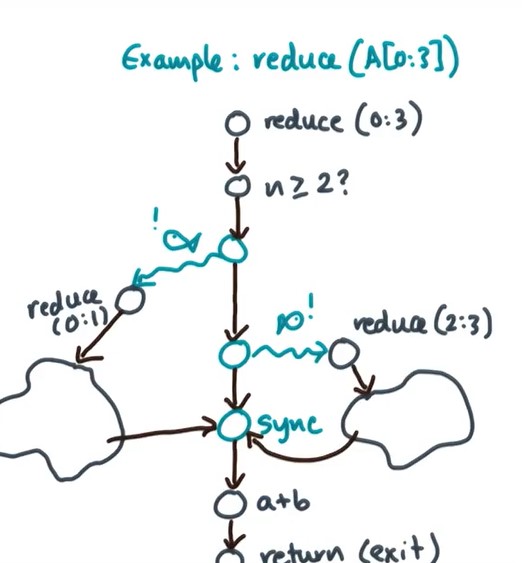 Example: reduce (A[0:3])
reduce (0:3)
n ≥ 2?
!
!
reduce
(0:1)
reduce (2:3)
sync
a+b
return (exit)